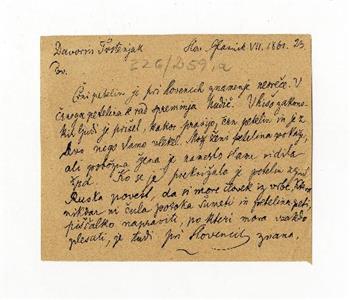 Davorin Trstenjak
Slov. Glasnik VII. 1861. 23.
226/D59, a
Črni petelin je pri Slovencih znamenje nesreče. V
črnega petelina se rad spreminja hudič. V hišo
ljudi je prišel, kakor pravijo, črn petelin in je z
nego slamo vlekel. Moj ženi petelina pokaj,
ali grobojna žena je namesto slame vidila
Ko se je prekrižala je petelin
Ruska povest, da si more človek iz vrbe,
nikdar ni čula potoka šumeti in petelina peti,
piščalko napraviti, po kteri mora vsakdo
plesati, je tudi pri Slovencih znana.